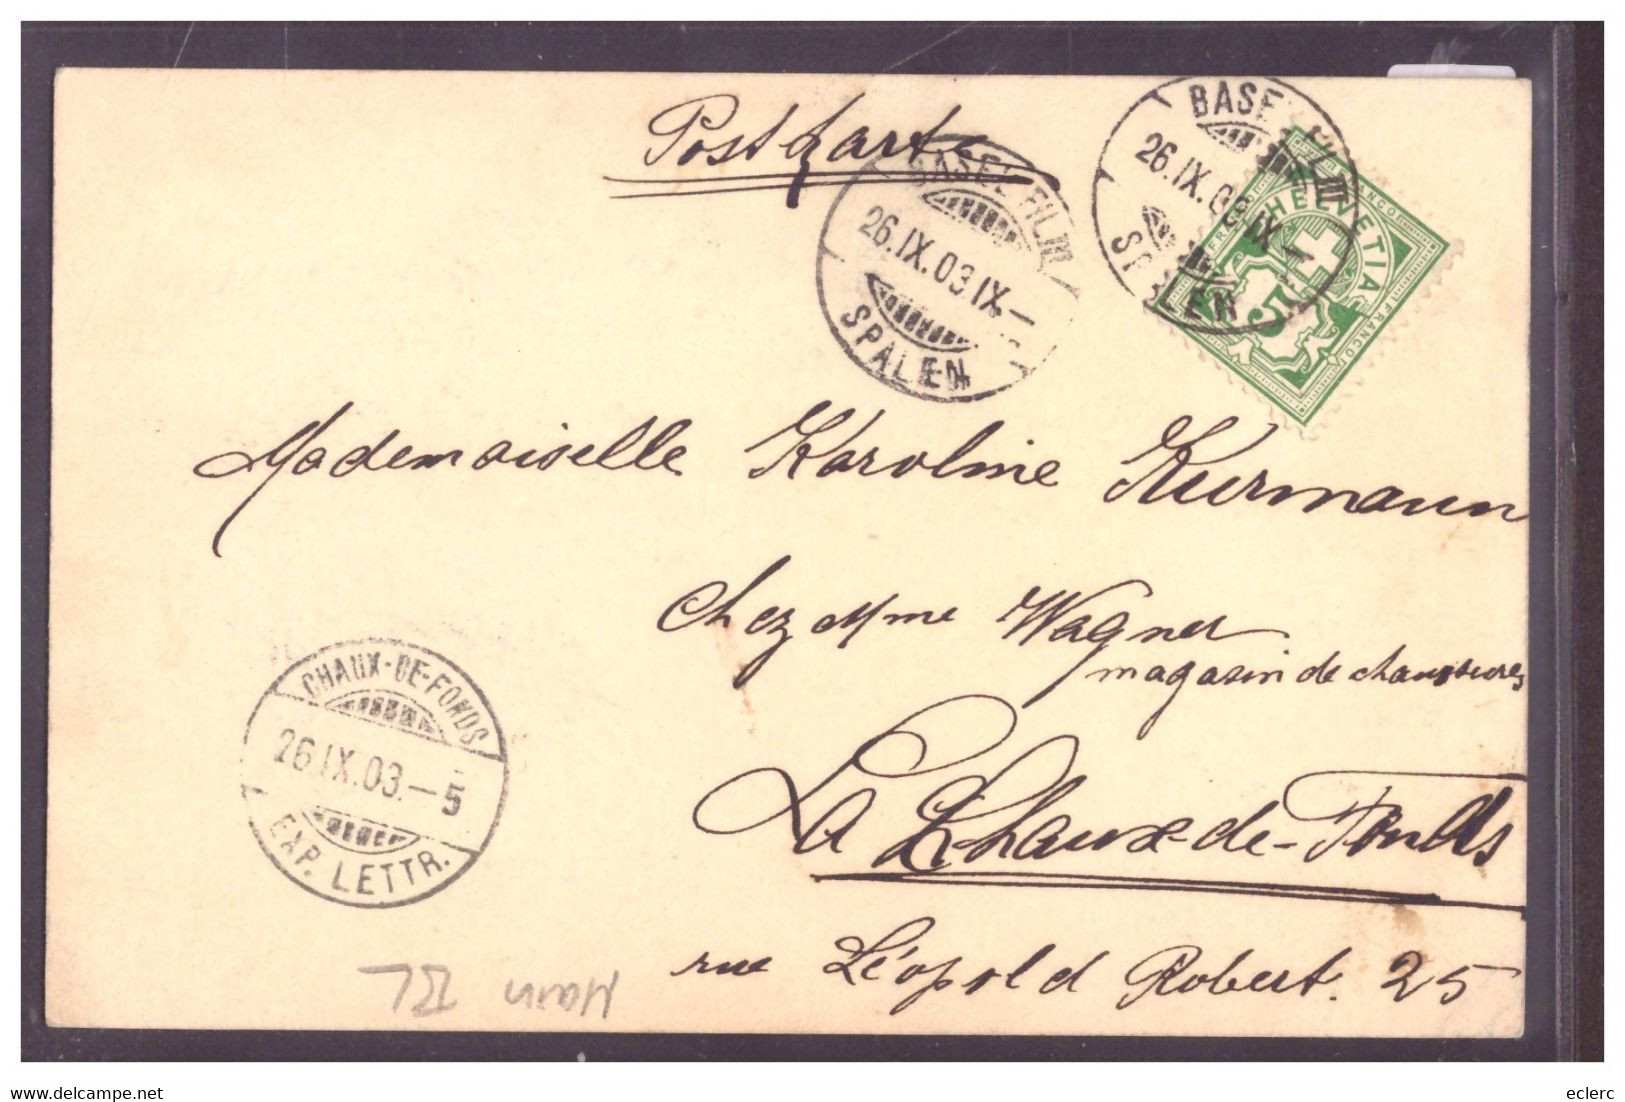 Postkarte
BASEL FIL. III
26.IX.03 IX–
SPALEN
BASEL FIL. III
26.IX.03 IX–
SPALEN
FRANCO FRANCO FRANCO
HELVETIA
5
Mademoiselle Karoline Kurmann
Chez Mme Wagner
magasin de chaussures
La Chaux-de-Fonds
rue Léopold Robert. 25
CHAUX-DE-FONDS
26.IX.03.–5
EXP. LETTR.
Main BL
www.delcampe.net
eclerc